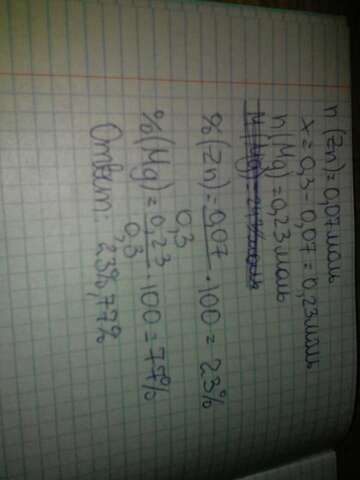 n(Zn)=0,07моль
x=0,3-0,07=0,23моль
n(Mg)=0,23моль
%(Zn)=0,07/0,3·100=23%
%(Mg)=0,23/0,3·100=77%
Ответ: 23%,77%